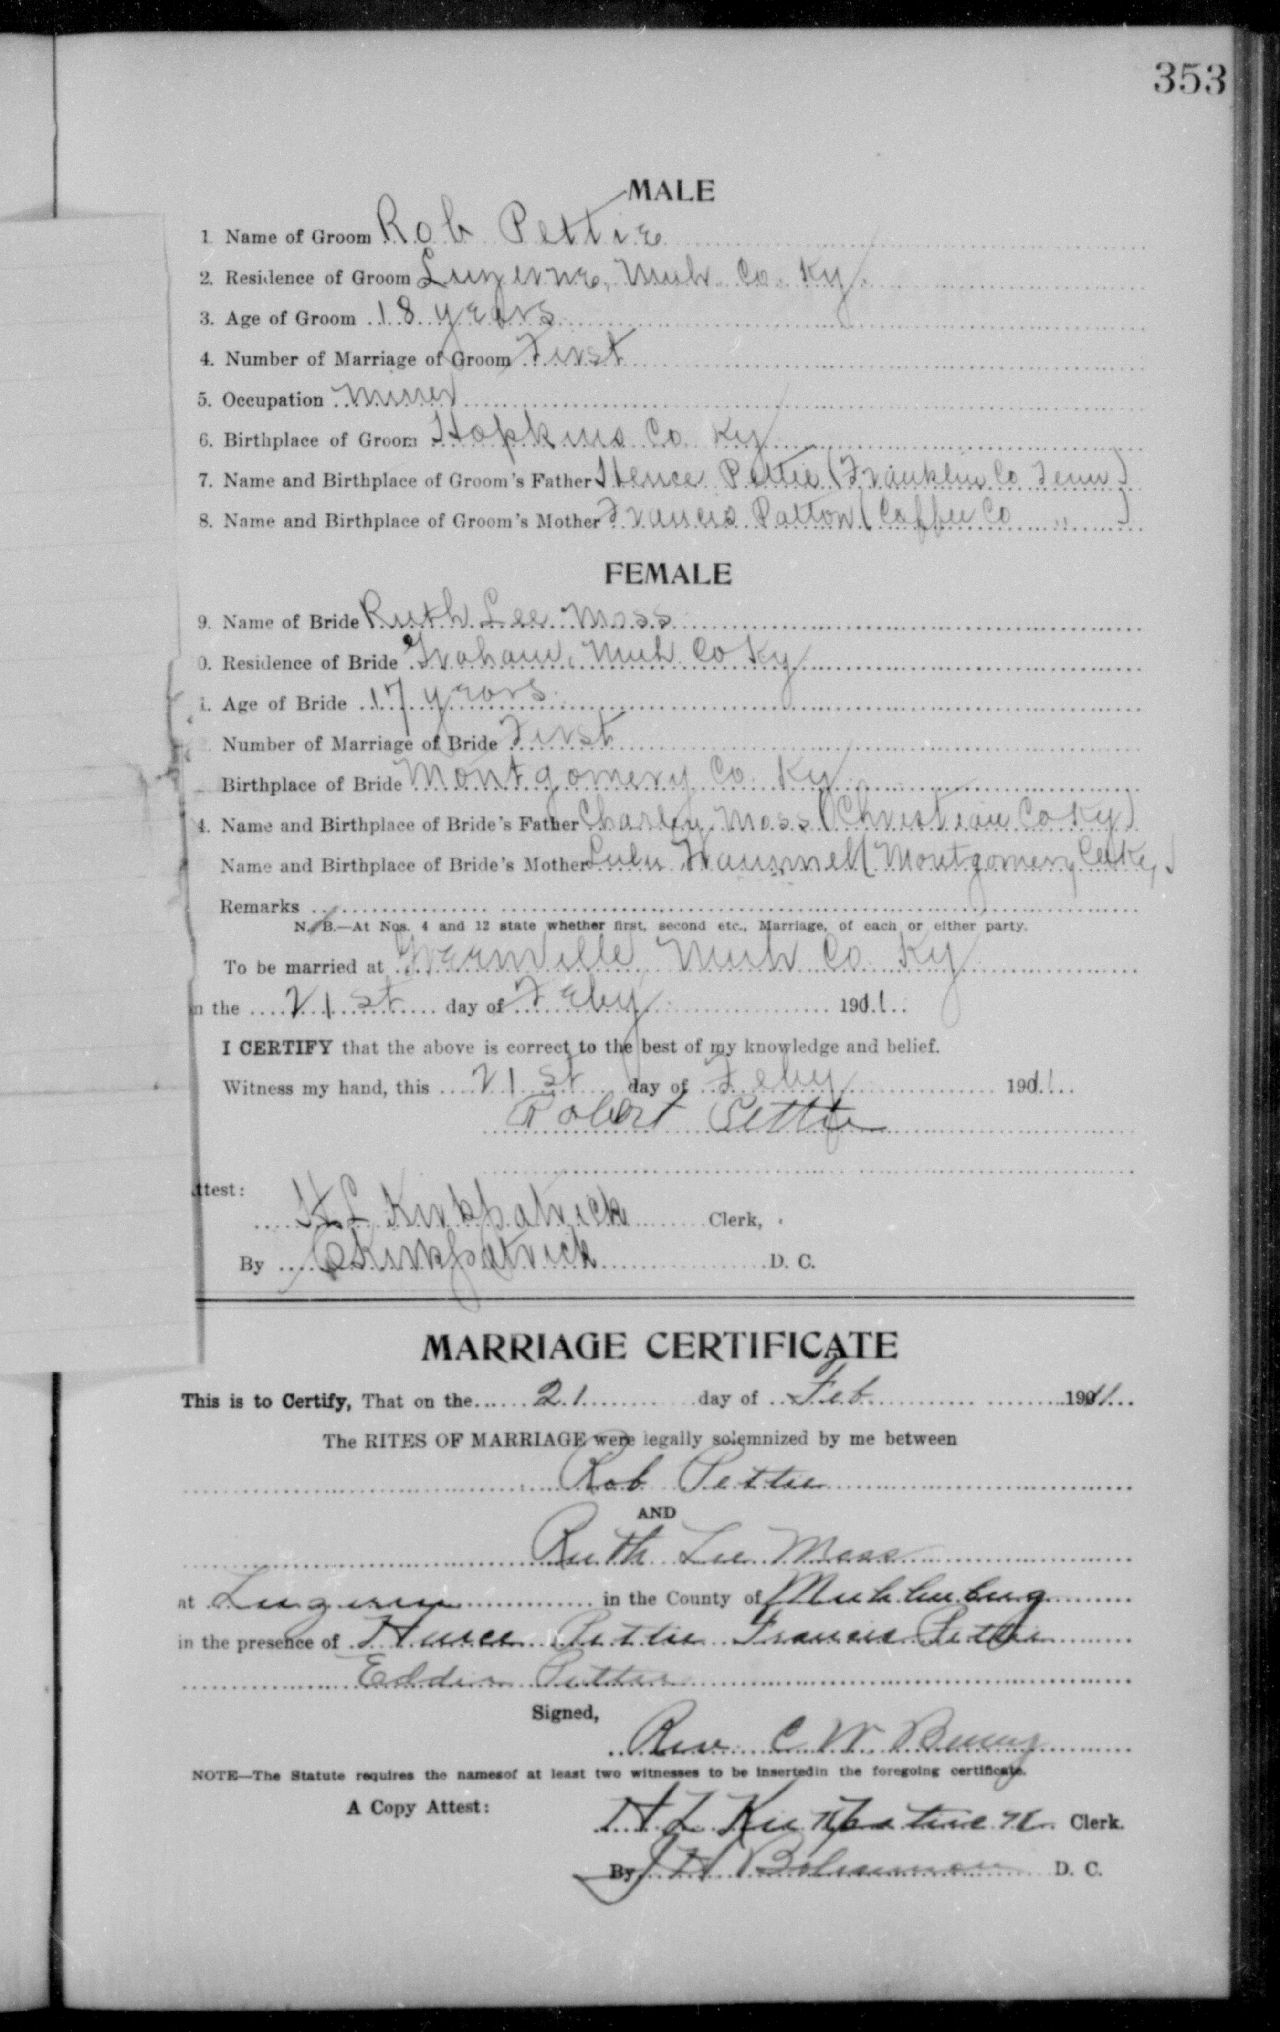 353
MALE
1 Name of Groom Rob Pettie
2. Residence of Groom Luzerne, Muh. Co. Ky.
3. Age of Groom 18 years
4. Number of Marriage of Groom First
5. Occupation Miner
6. Birthplace of Groom Hopkins Co. Ky
7. Name and Birthplace of Groom's Father Hence Pettie (Franklin Co Tenn)
8. Name and Birthplace of Groom's Mother Francis Patton (Coffee Co " )
FEMALE
9. Name of Bride Ruth Lee Moss
0. Residence of Bride Graham, Muh Co Ky
1. Age of Bride 17 years
2. Number of Marriage of Bride First
Birthplace of Bride Montgomery Co. Ky
4. Name and Birthplace of Bride's Father Charley Moss (Christian Co Ky)
Name and Birthplace of Bride's Mother Lulu (Montgomery Co Ky.)
Remarks
N. B.—At Nos. 4 and 12 state whether first, second etc., Marriage, of each or either party.
To be married at Greenville, Muh Co. Ky
n the 21st day of Feby 1911
I CERTIFY that the above is correct to the best of my knowledge and belief.
Witness my hand, this 21st day of Feby 1911
Robert Pettie
ttest:
H L Kirkpatrick Clerk,
By C Kirkpatrick D. C.
MARRIAGE CERTIFICATE
This is to Certify, That on the 21 day of Feb 1911
The RITES OF MARRIAGE were legally solemnized by me between
Rob Pettie
AND
Ruth Lee Moss
at Luzern in the County of Muhlenburg
in the presence of Hence Pettie Francis Pettie
Eddie Pettie
Signed,
Rev. C W
NOTE—The Statute requires the namesof at least two witnesses to be insertedin the foregoing certificate.
A Copy Attest:
H L Kirkpatrick Clerk.
By J H D. C.